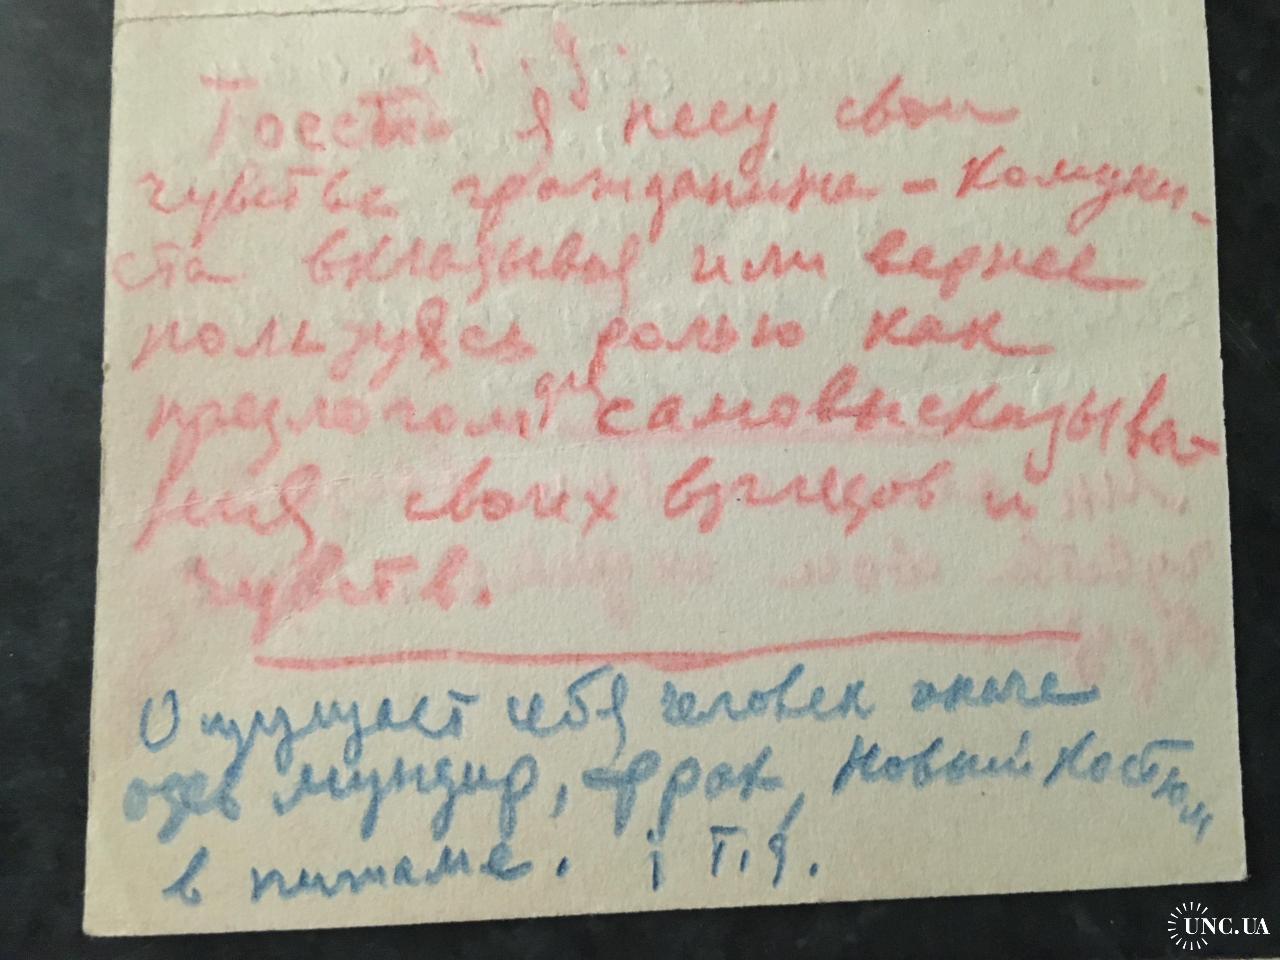 и т.д.
Тоесть я несу свои
чувства гражданина - комуни-
ста вкладывая или вернее
пользуясь ролью как
предлогом для самовысказыва-
ния своих взглядов и
чувств.
Ощущает себя человек иначе
одев мундир, фрак, новый костюм
в пижаме. і т.д.
UNC.UA